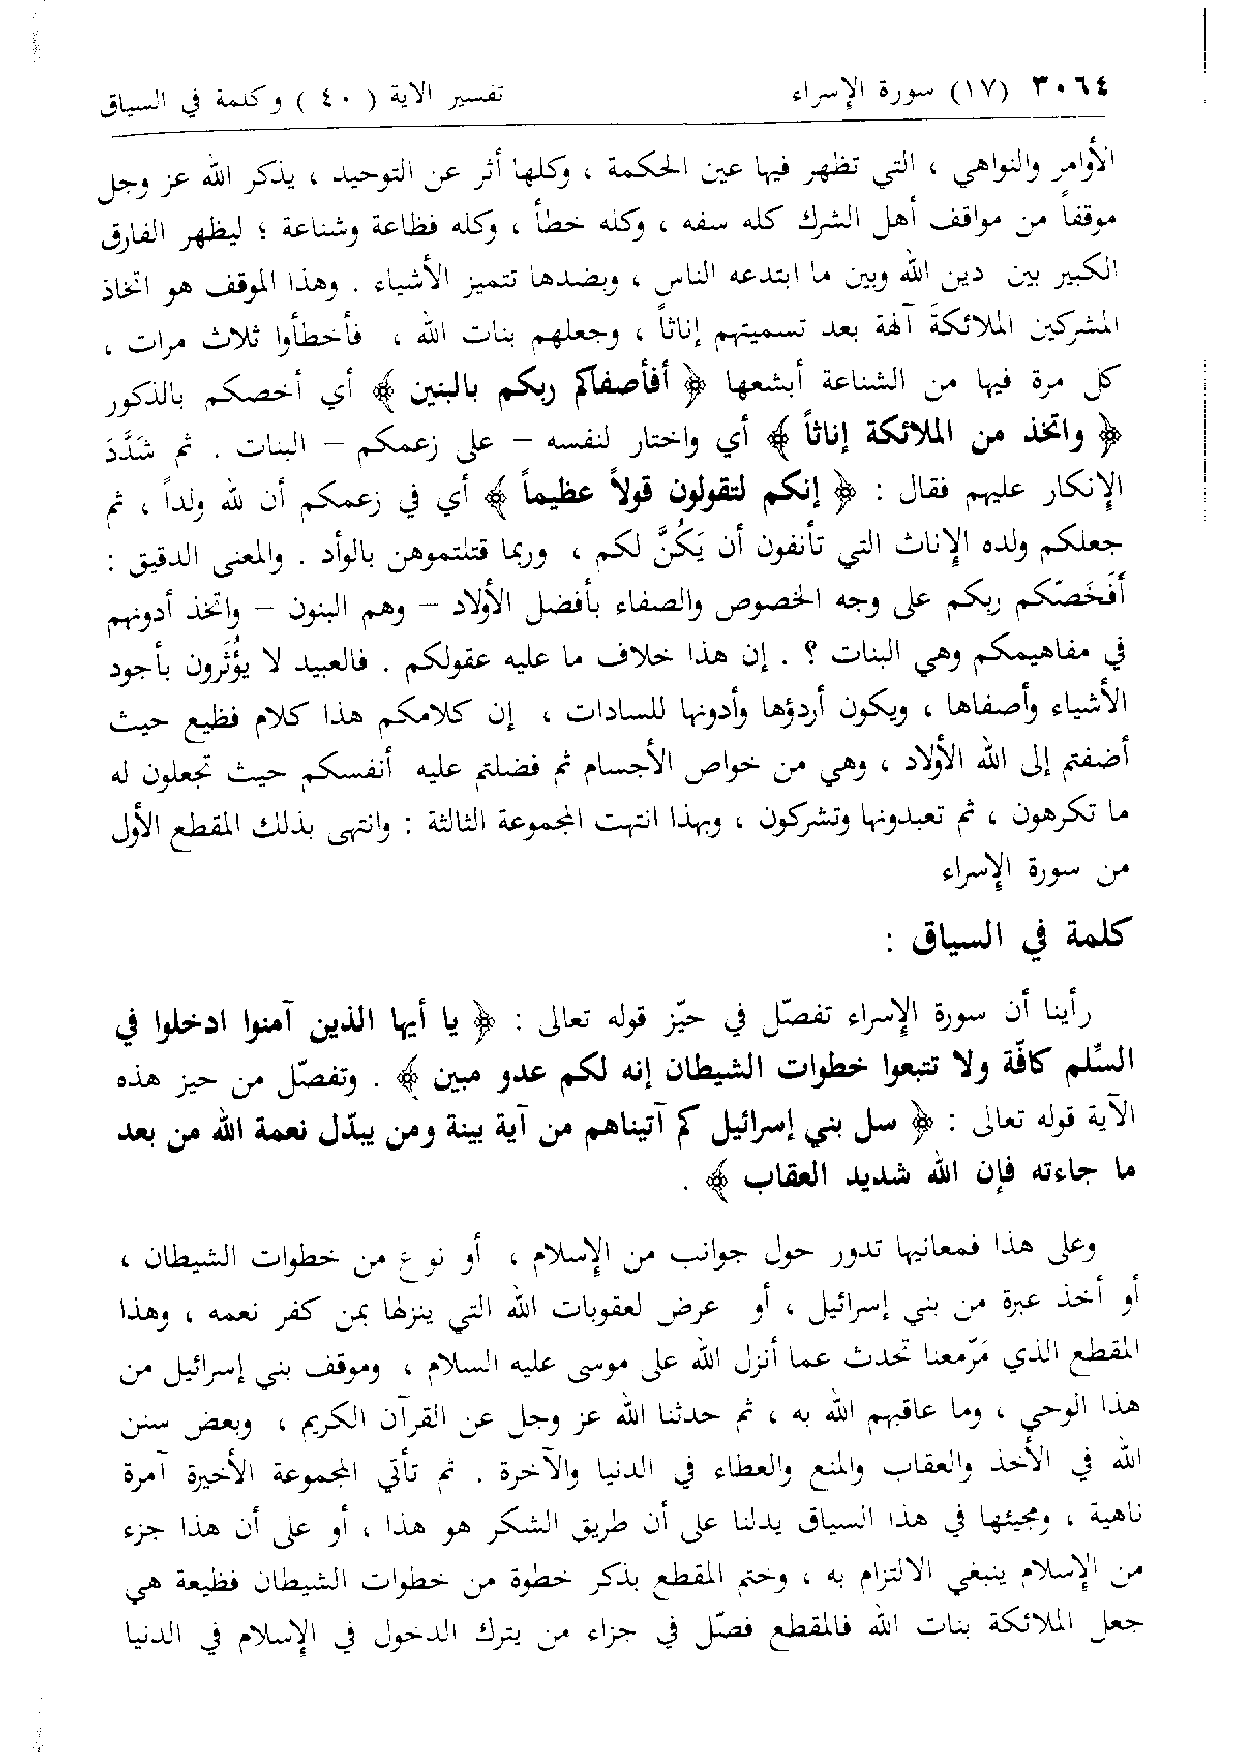 ٣٠٦٤ (١٧) سورة الإسراء تفسير الآية ( ٤٠ ) وكلمة في السياق
الأوامر والنواهي ، التي تظهر فيها عين الحكمة ، وكلها أثر عن التوحيد ، يذكر الله عز وجل
موقفاً من مواقف أهل الشرك كله سفه ، وكله خطأ ، وكله فظاعة وشناعة ؛ ليظهر الفارق
الكبير بين دين الله وبين ما ابتدعه الناس ، وبضدها تتميز الأشياء . وهذا الموقف هو اتخاذ
المشركين الملائكةَ آلهة بعد تسميتهم إناثاً ، وجعلهم بنات الله ، فأخطأوا ثلاث مرات ،
كل مرة فيها من الشناعة أبشعها ﴿ أفأصفاكم ربكم بالبنين ﴾ أي أخصكم بالذكور
﴿ واتخذ من الملائكة إناثاً ﴾ أي واختار لنفسه – على زعمكم – البنات . ثم شَدَّدَ
الإنكار عليهم فقال : ﴿ إنكم لتقولون قولاً عظيماً ﴾ أي في زعمكم أن لله ولداً ، ثم
جعلكم ولده الإناث التي تأنفون أن يَكُنَّ لكم ، وربما قتلتموهن بالوأد . والمعنى الدقيق :
أَفَخَصّكم ربكم على وجه الخصوص والصفاء بأفضل الأولاد – وهم البنون – واتخذ أدونهم
في مفاهيمكم وهي البنات ؟ . إن هذا خلاف ما عليه عقولكم . فالعبيد لا يؤُثَرون بأجود
الأشياء وأصفاها ، ويكون أردؤها وأدونها للسادات ، إن كلامكم هذا كلام فظيع حيث
أضفتم إلى الله الأولاد ، وهي من خواص الأجسام ثم فضلتم عليه أنفسكم حيث تجعلون له
ما تكرهون ، ثم تعبدونها وتشركون ، وبهذا انتهت المجموعة الثالثة : وانتهى بذلك المقطع الأول
من سورة الإسراء
كلمة في السياق :
رأينا أن سورة الإسراء تفصّل في حيّز قوله تعالى : ﴿ يا أيها الذين آمنوا ادخلوا في
السِّلم كافّة ولا تتبعوا خطوات الشيطان إنه لكم عدو مبين ﴾ . وتفصّل من حيز هذه
الآية قوله تعالى : ﴿ سل بني إسرائيل كم آتيناهم من آية بينة ومن يبدّل نعمة الله من بعد
ما جاءته فإن الله شديد العقاب ﴾ .
وعلى هذا فمعانيها تدور حول جوانب من الإسلام ، أو نوع من خطوات الشيطان ،
أو أخذ عبرة من بني إسرائيل ، أو عرض لعقوبات الله التي ينزلها بمن كفر نعمه ، وهذا
المقطع الذي مَرّمعنا تحدث عما أنزل الله على موسى عليه السلام ، وموقف بني إسرائيل من
هذا الوحي ، وما عاقبهم الله به ، ثم حدثنا الله عز وجل عن القرآن الكريم ، وبعض سنن
الله في الأخذ والعقاب والمنع والعطاء في الدنيا والآخرة . ثم تأتي المجموعة الأخيرة آمرة
ناهية ، ومجيئها في هذا السياق يدلنا على أن طريق الشكر هو هذا ، أو على أن هذا جزء
من الإسلام ينبغي الالتزام به ، وختم المقطع بذكر خطوة من خطوات الشيطان فظيعة هي
جعل الملائكة بنات الله فالمقطع فصّل في جزاء من يترك الدخول في الإسلام في الدنيا